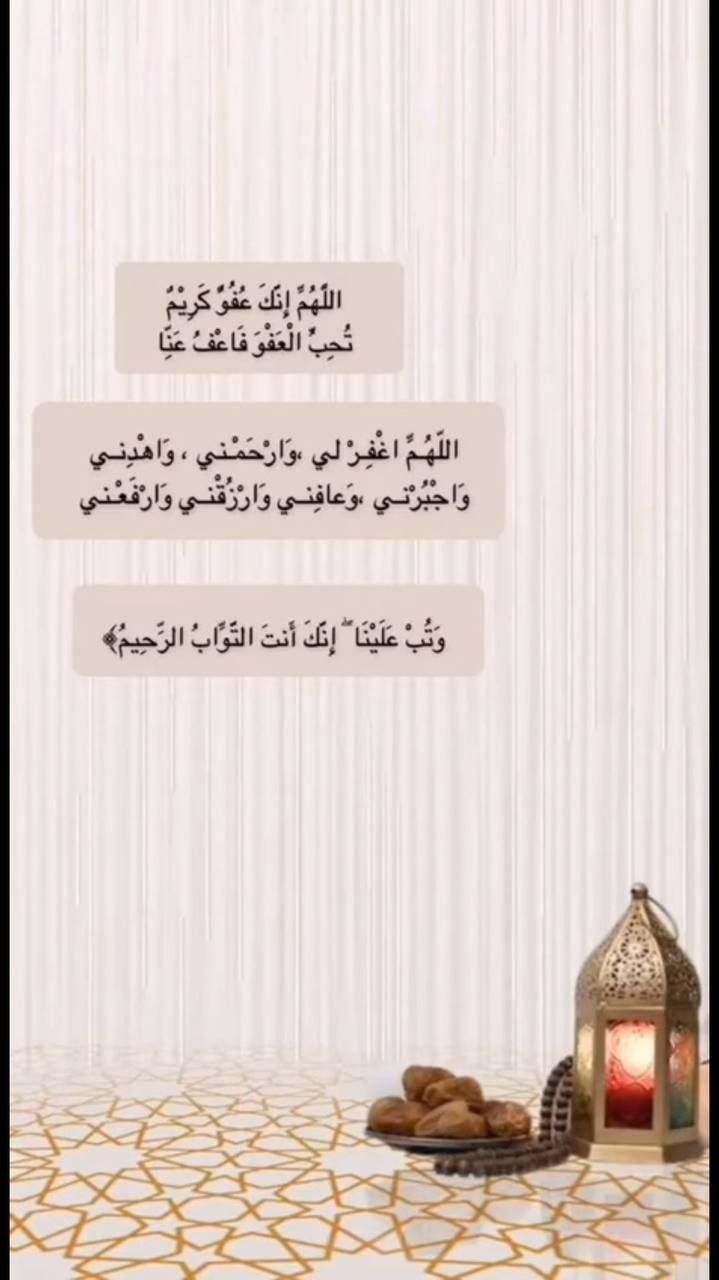 اللَّهُمَّ إِنَّكَ عُفُوٌ كَرِيْمٌ
تُحِبُّ الْعَفْوَ فَاعْفُ عَنِّا
اللّهُـمَّ اغْفِـرْ لي ،وَارْحَمْـني ، وَاهْدِنـي
وَاجْبُرْنـي ،وَعافِنـي وَارْزُقْنـي وَارْفَعْـني
وَتُبْ عَلَيْنَا ۖ إِنَّكَ أَنتَ التَّوَّابُ الرَّحِيمُ﴾